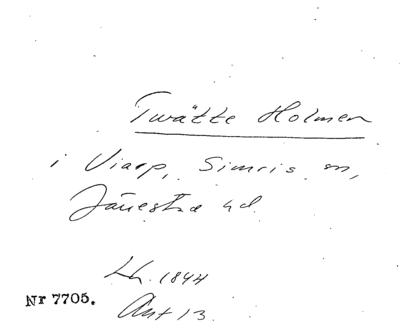 Twätte Holmen
i Viarp, Simris sn,
Järrestad hd
Lh. 1844
Nr 7705.
Akt 13